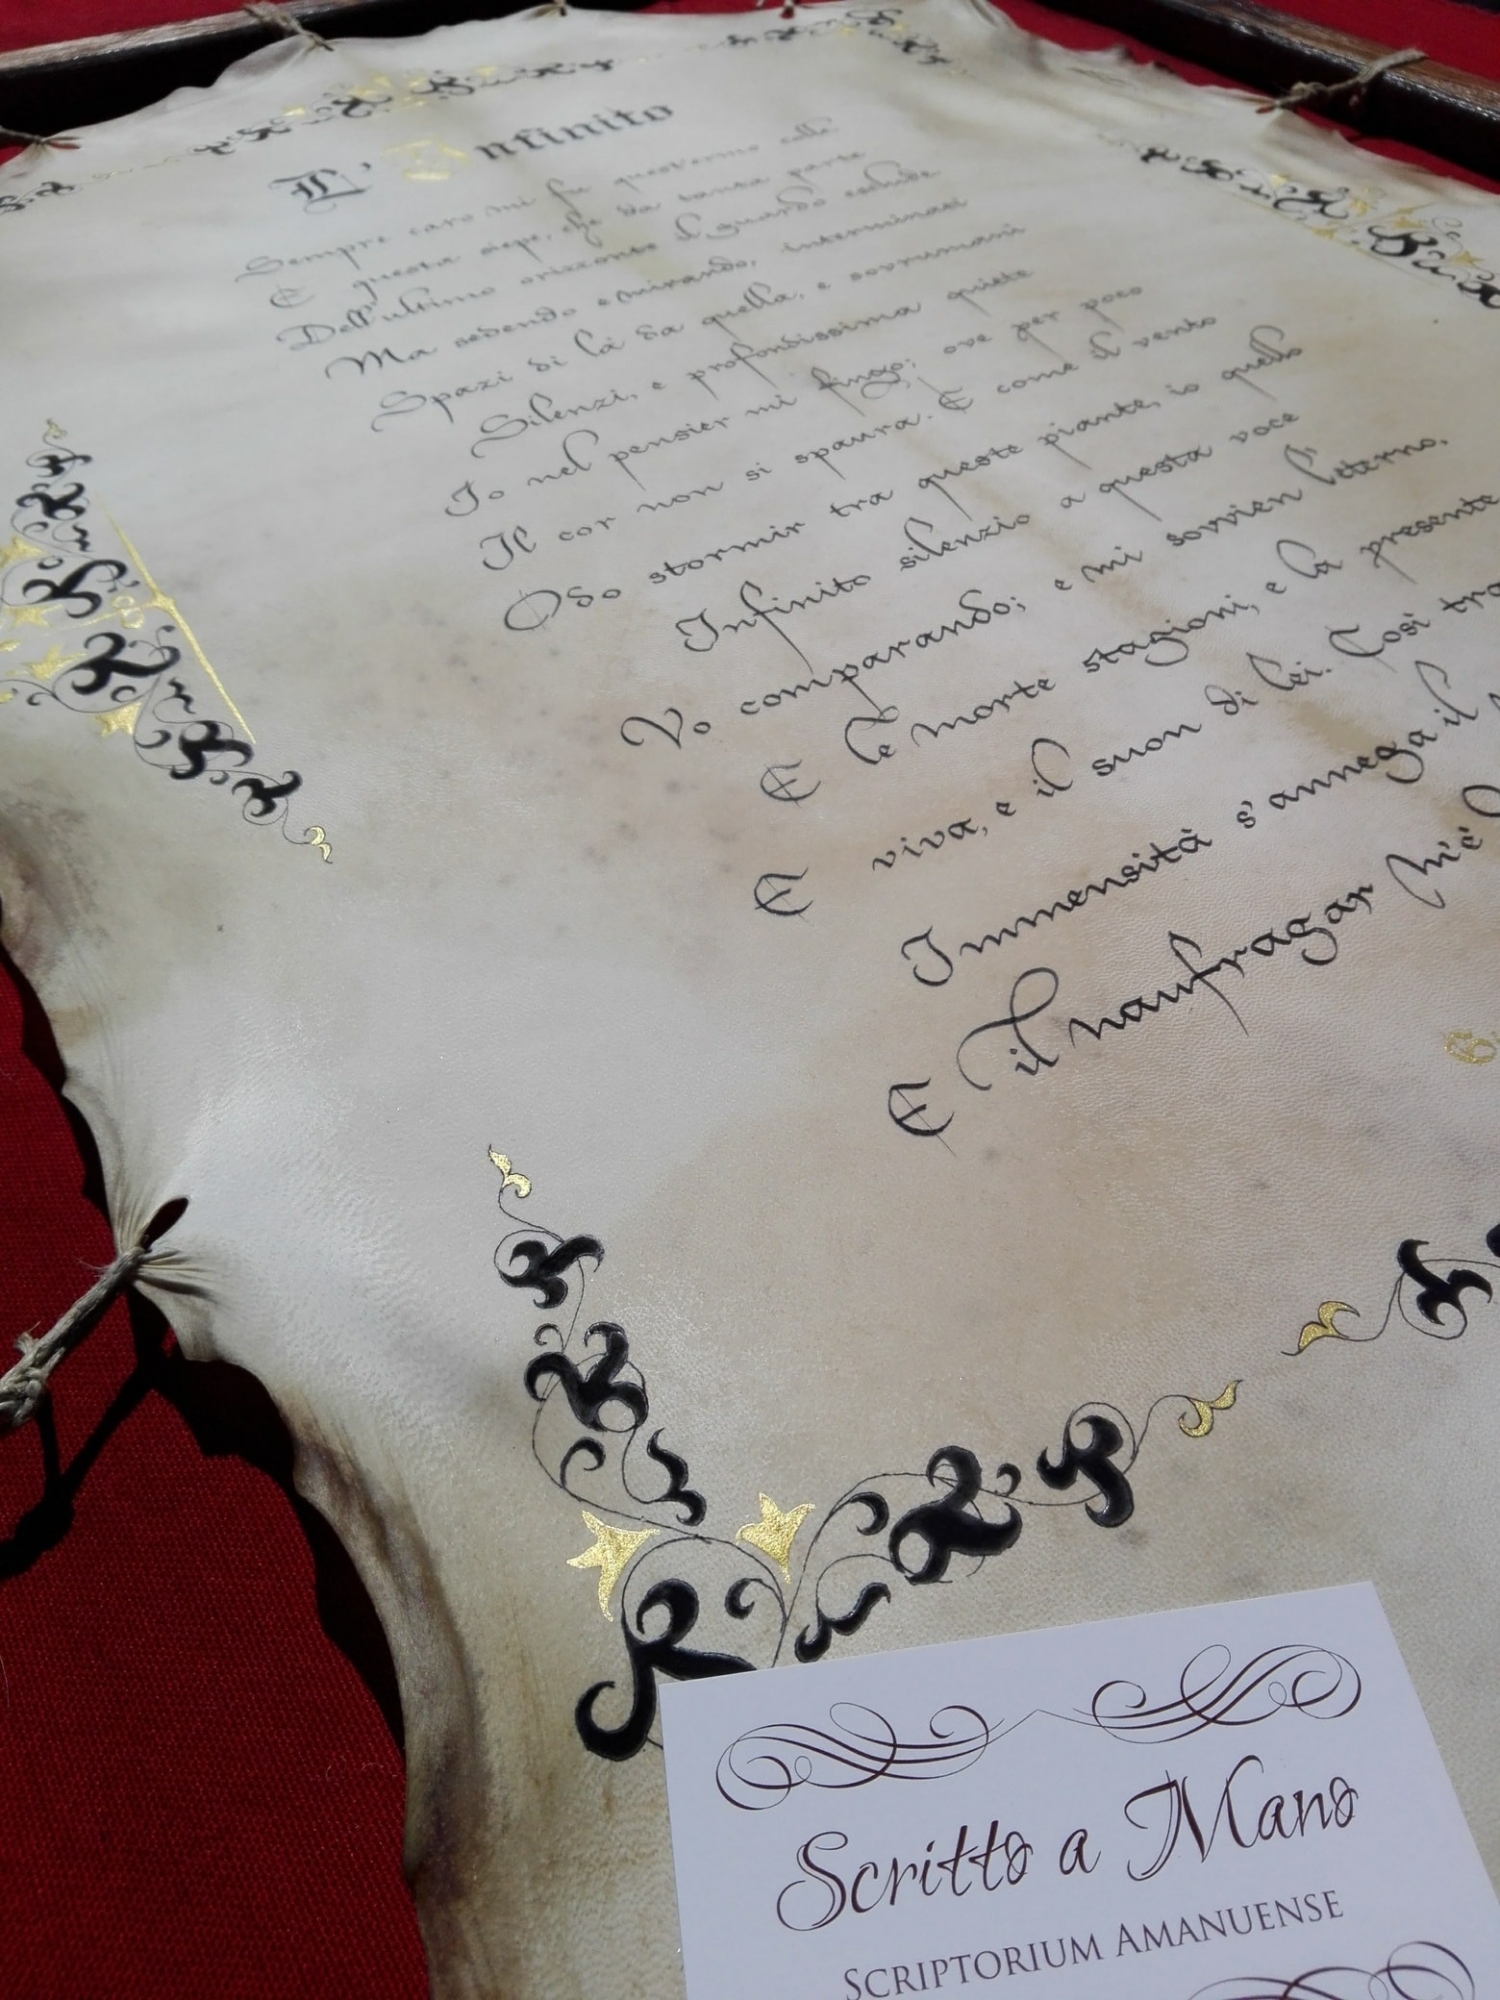 L' Infinito
Sempre caro mi fu quest'ermo colle
E questa siepe, che da tanta parte
Dell'ultimo orizzonte il guardo esclude
Ma sedendo e mirando, interminati
Spazi di là da quella, e sovrumani
Silenzi, e profondissima quiete
Io nel pensier mi fingo; ove per poco
Il cor non si spaura. E come il vento
Odo stormir tra queste piante, io quello
Infinito silenzio a questa voce
Vo comparando; e mi sovvien l'eterno,
E le morte stagioni, e la presente
E viva, e il suon di lei. Così tra
Immensità s'annega il
E il naufragar m'è
Scritto a Mano
SCRIPTORIUM AMANUENSE